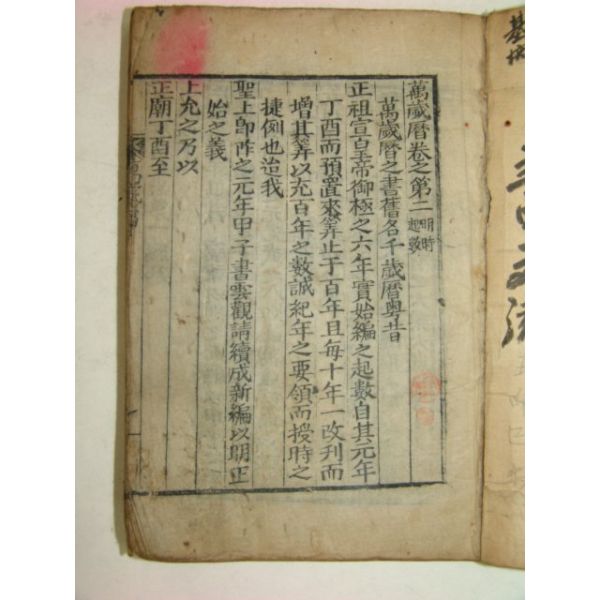 萬歲曆卷之第二 明時起數
萬歲曆之書舊名千歲曆粤昔
正祖宣皇帝御極之六年實始編之起數自其元年
丁酉而預置來筭止于百年且每十年一改刋而
增其筭以充百年之數誠紀年之要領而授時之
捷例也迨我
聖上卽阼之元年甲子書雲觀請續成新編以明正
始之義
上允之乃以
正廟丁酉至